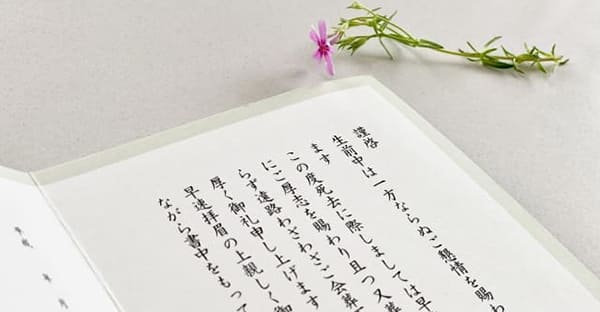 謹啓
生前中は一方ならぬご懇情を賜わ
ます
この度死去に際しましては早
にご厚志を賜わり且つ又葬
らず遠路わざわざご会葬
厚く御礼申し上げます
早速拝眉の上親しく御
ながら書中をもって